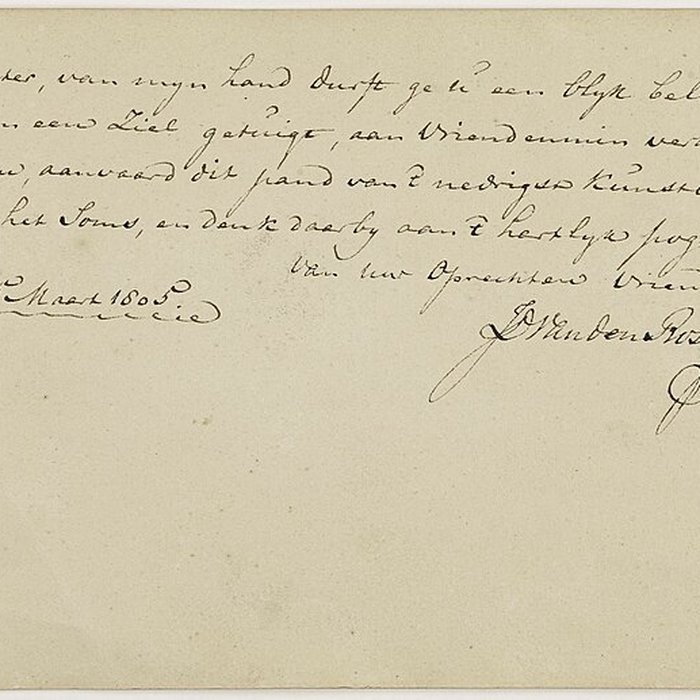 van myn hand durft ge u een blyk
een Ziel getuigt, aan Vriendenmin
aanvaard dit pand van 't nedrigst
het Soms, en denk daarby aan 't hartlyk
van uw Oprechten
Maart 1805
Van den